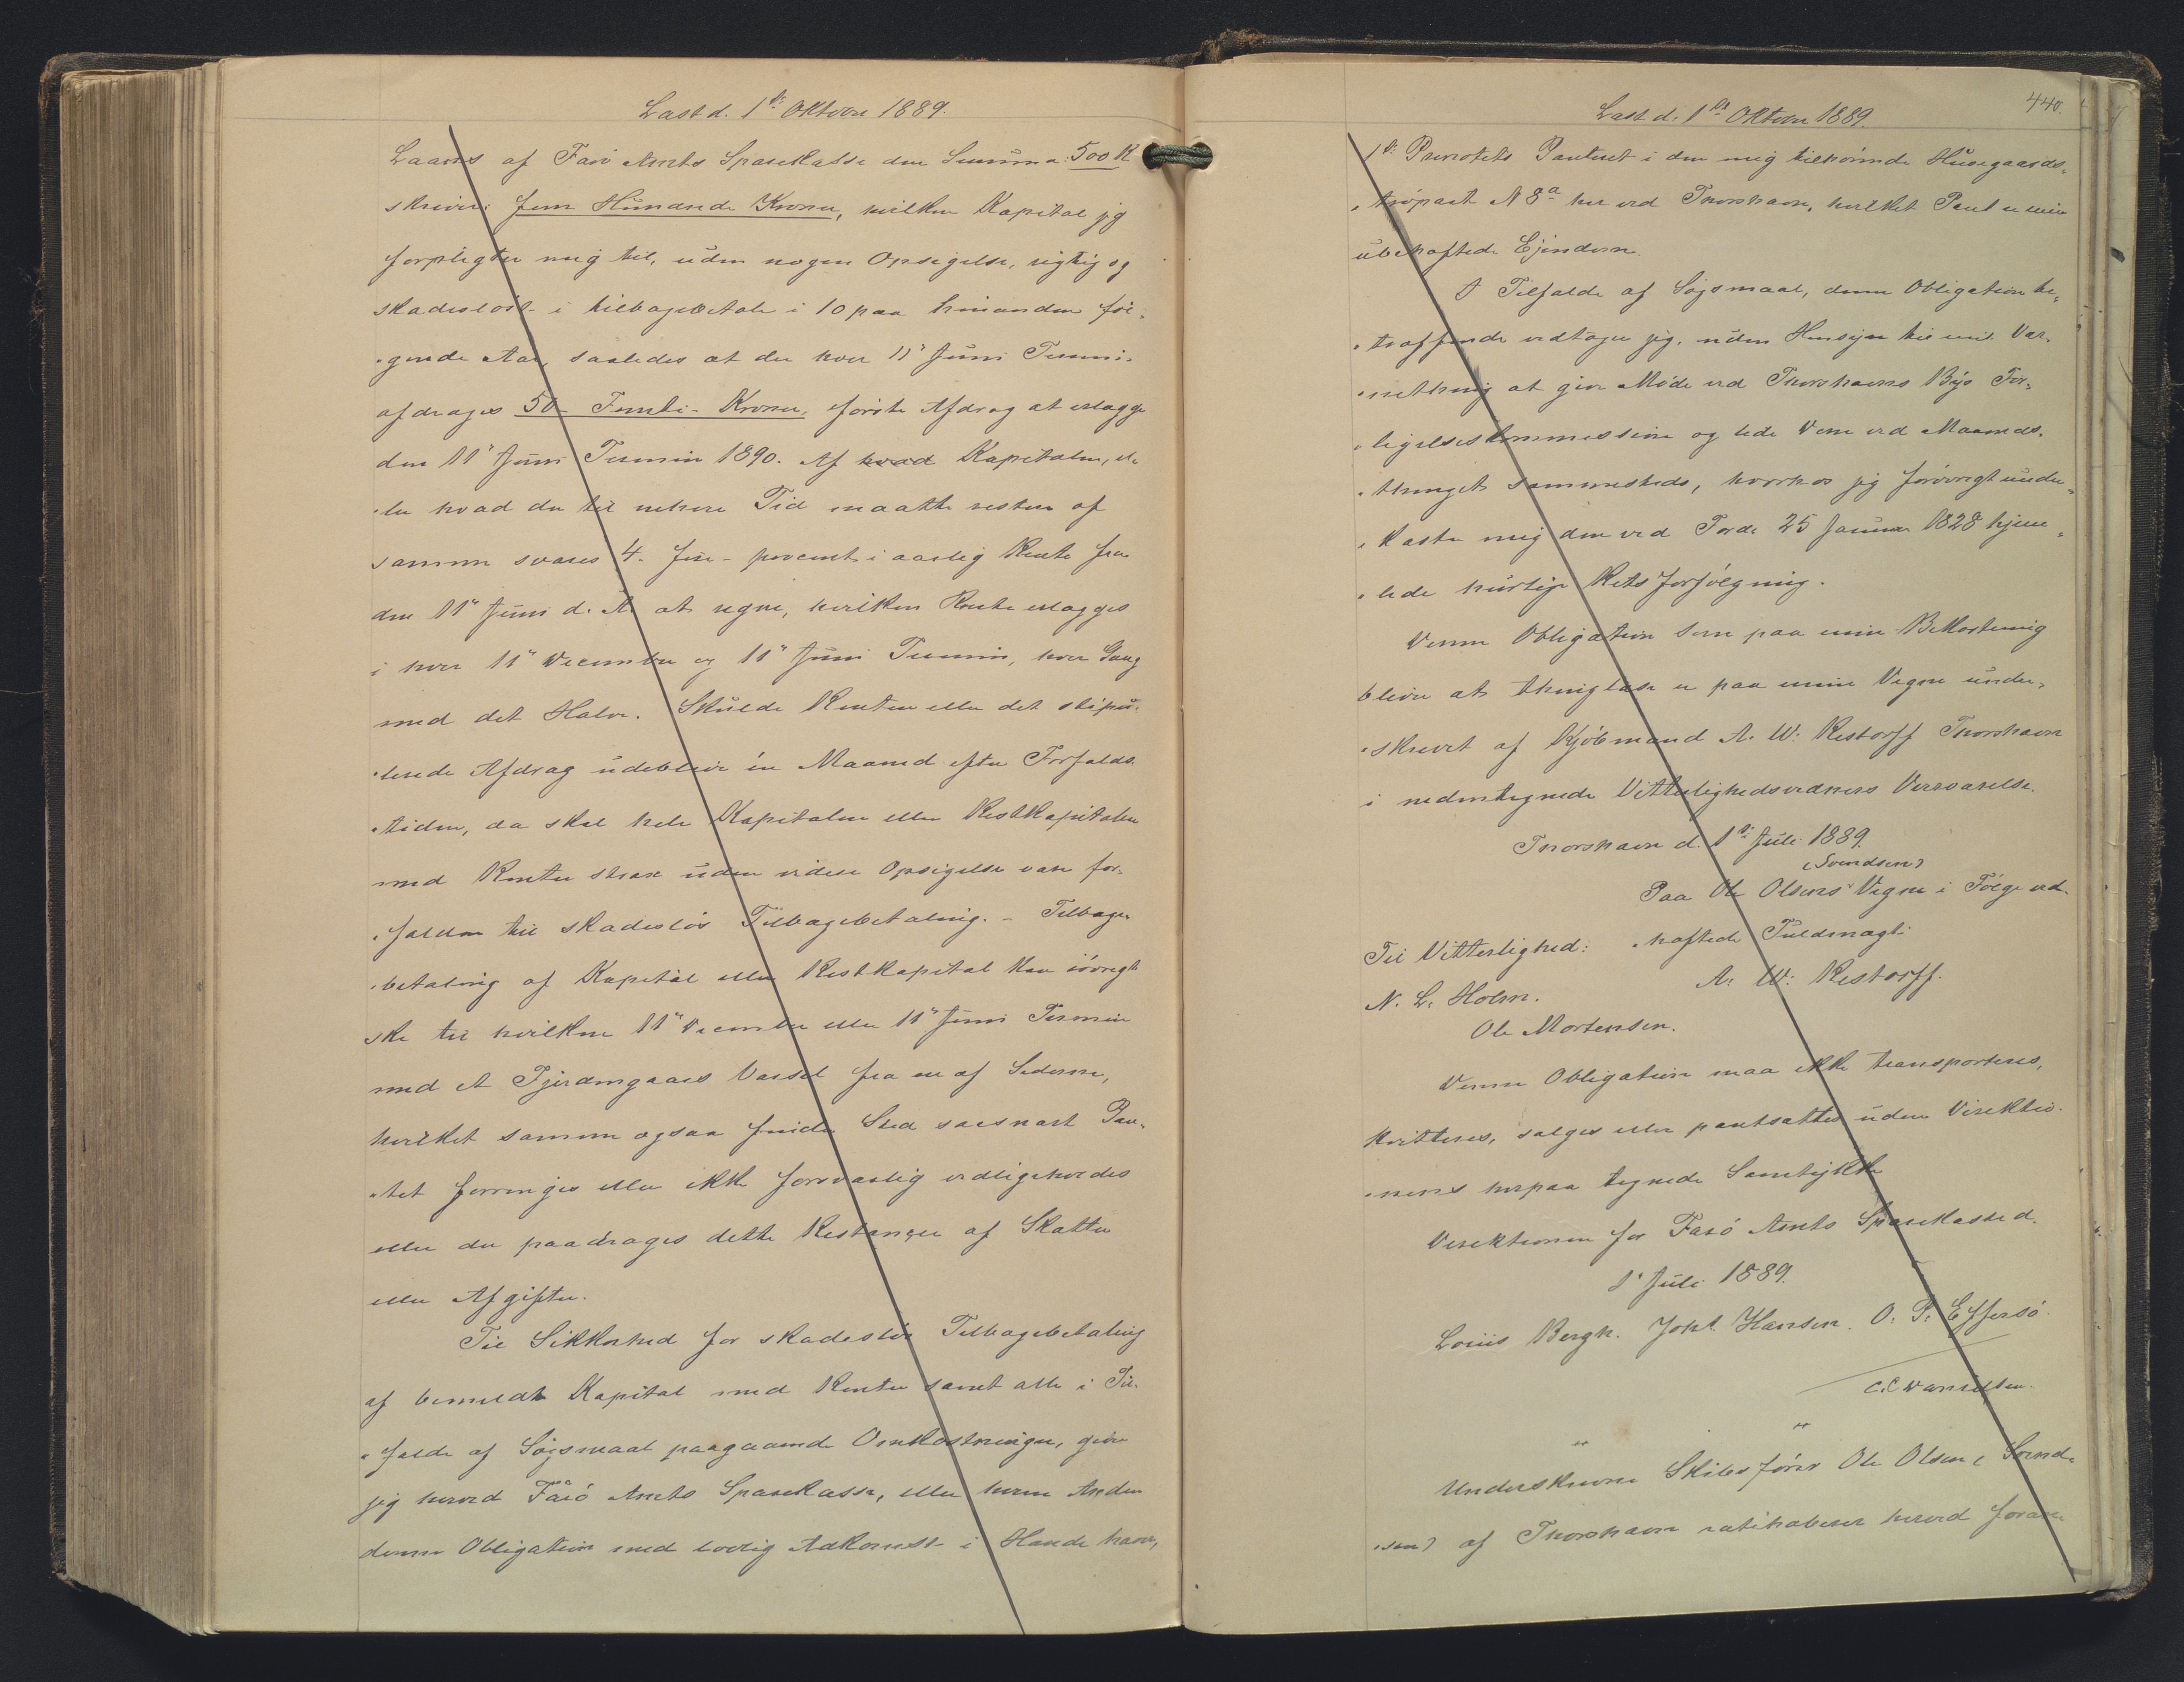 Læst d. 1ste Oktober 1889.
Laans af Færø Amts Sparekasse den Summa: 500 K
skriver Fem Hundrede Kroner, hvilken Kapital jeg
forpligter mig til, uden nogen Opsigelse, rigtig og
skadesløst i tilbagebetale i 10 paa hinanden føl-
-gende Aar, saaledes at der hver 11" Juni Termin
afdrages 50 - Femti - Kroner, første Afdrag at erlægge
den 11" Juni Termin 1890. Af hvad Kapitalen, el-
-ler hvad der til enhver Tid maatte restere af
samme svares 4 - fire - procent i aarlig Rente fra
den 11" Juni d. A. at regne, hvilken Rente erlægges
i hver 11" December og 11" Juni Termin, hver Gang
med det Halve. Skulde Renten eller det stipu-
-lerede Afdrag udeblive én Maaned efter Forfalds-
-tiden, da skal hele Kapitalen eller Restkapitalen
med Renter strax uden videre Opsigelse være for-
-falden til skadesløs Tilbagebetaling. - Tilbage-
-betaling af Kapital eller Restkapital kan iøvrigt
ske til hvilken 11" December eller 11" Juni Termin
med et Fjerdingaars Varsel fra en af Siderne,
hvilket samme ogsaa finder Sted saasnart Pan-
-tet forringes eller ikke forsvarlig vedligeholdes
eller der paadrages dette Restancer af Skatter
eller Afgifter.
Til Sikkerhed for skadesløs Tilbagebetaling
af bemeldt Kapital med Renter samt alle i Til-
-fælde af Søgsmaal paagaaende Omkostninger, giver
jeg herved Færø Amts Sparekasse, eller hvem Anden
denne Obligation med lovlig Adkomst i Hænde haver,
440.
Læst d. 1ste Oktober 1889.
1ste Prioritets Panteret i den mig tilhørende Husegaards-
-tröpart N 8a her ved Thorshavn, hvilket Pant er min
ubehæftede Ejendom.
I Tilfælde af Søgsmaal, denne Obligation be-
-træffende vedtager jeg, uden Hensyn til mit Vær-
-nething at give Møde ved Thorshavns Bys For-
-ligelseskommission og lide Dom ved Maaneds-
-thinget sammesteds, hvorhos jeg forøvrigt under-
-kaster mig den ved Forde 25 Januar 1828 hjem-
-lede hurtige Retsforfølgning.
Denne Obligation som paa min Bekostning
bliver at thinglæse er paa mine Vegne under-
-skrevet af Kjøbmand A. W. Restorff Thorshavn
i nedentegnede Vitterlighedsvidners Overværelse.
Thorshavn d. 1ste Juli 1889.
(Svendsen)
Paa Ole Olsens Vegne i Følge ved-
Til Vitterlighed: -hæftede Fuldmagt:
N. L. Holm. A. W. Restorff.
Ole Mortensen.
Denne Obligation maa ikke transporteres,
kvitteres, sælges eller pantsættes uden Direktio-
-nens herpaa tegnede Samtykke
Direktionen for Færø Amts Sparekasse d.
1' Juli 1889.
Louis Bergh. Johs Hansen. O. P. Effersø.
C.C Danielsen.
" "
Underskrevne Skibsfører Ole Olsen (Svend-
-sen) af Thorshavn ratihaberer herved foran-